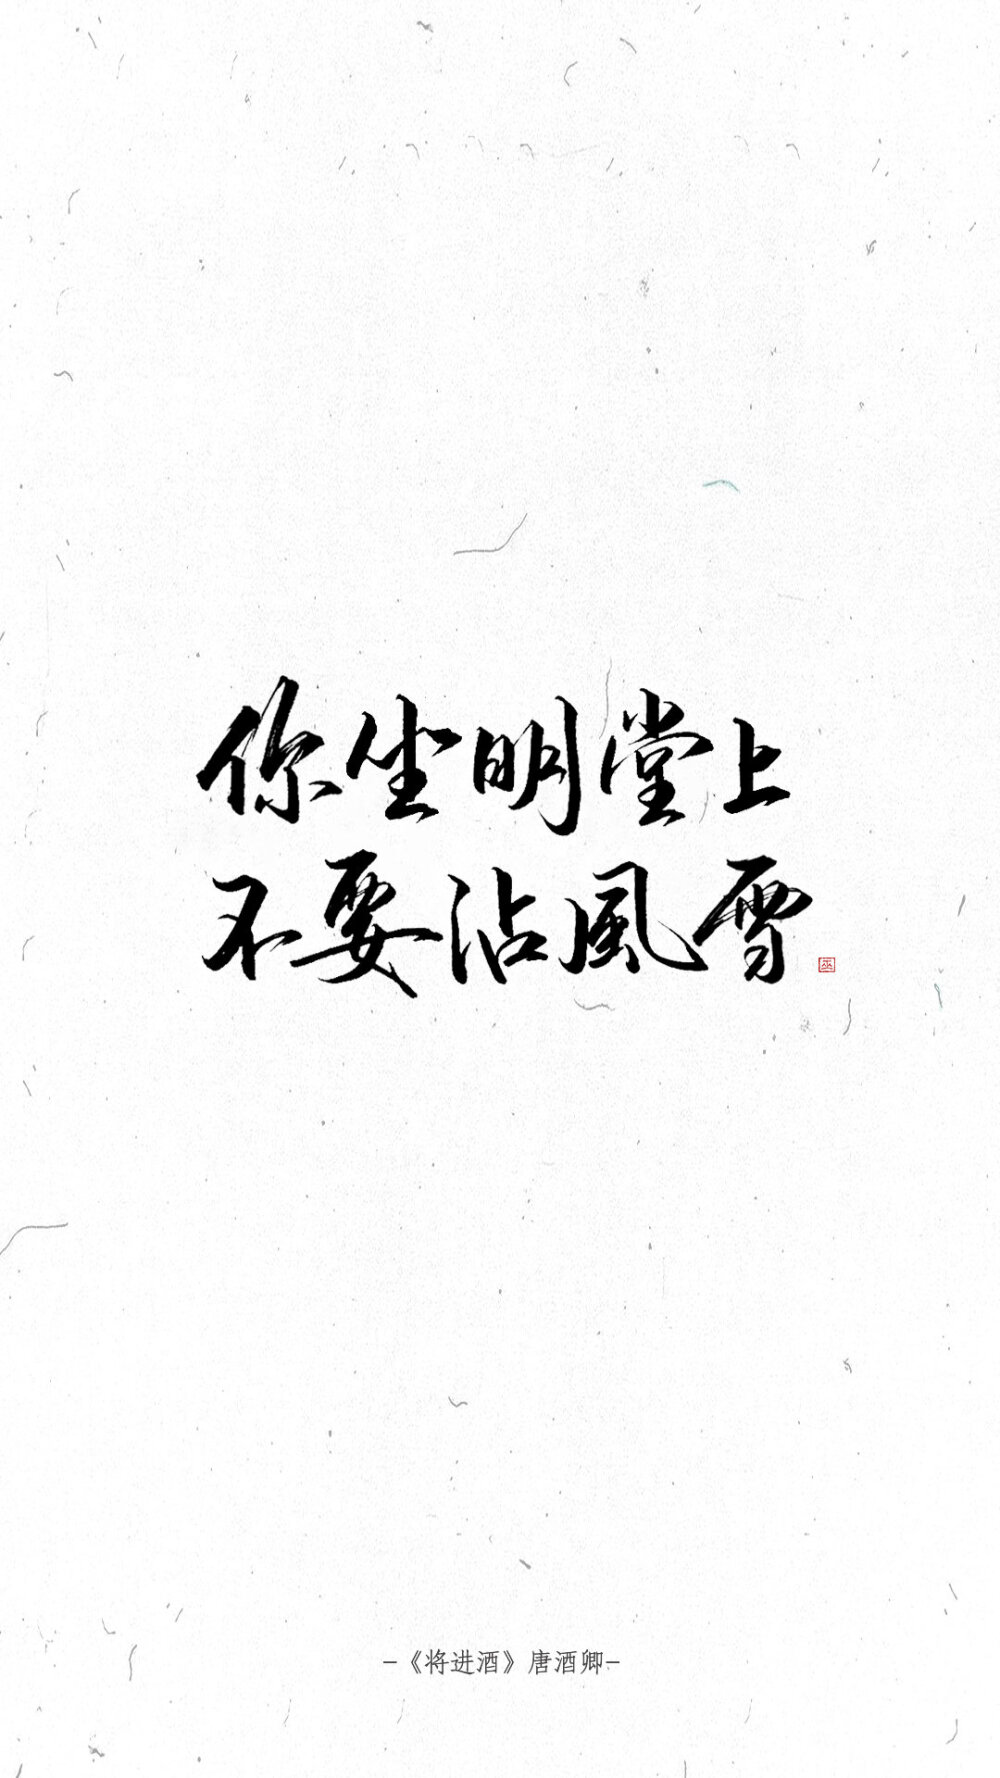 你坐明堂上
不要沾風雪
巫
–《将进酒》唐酒卿–